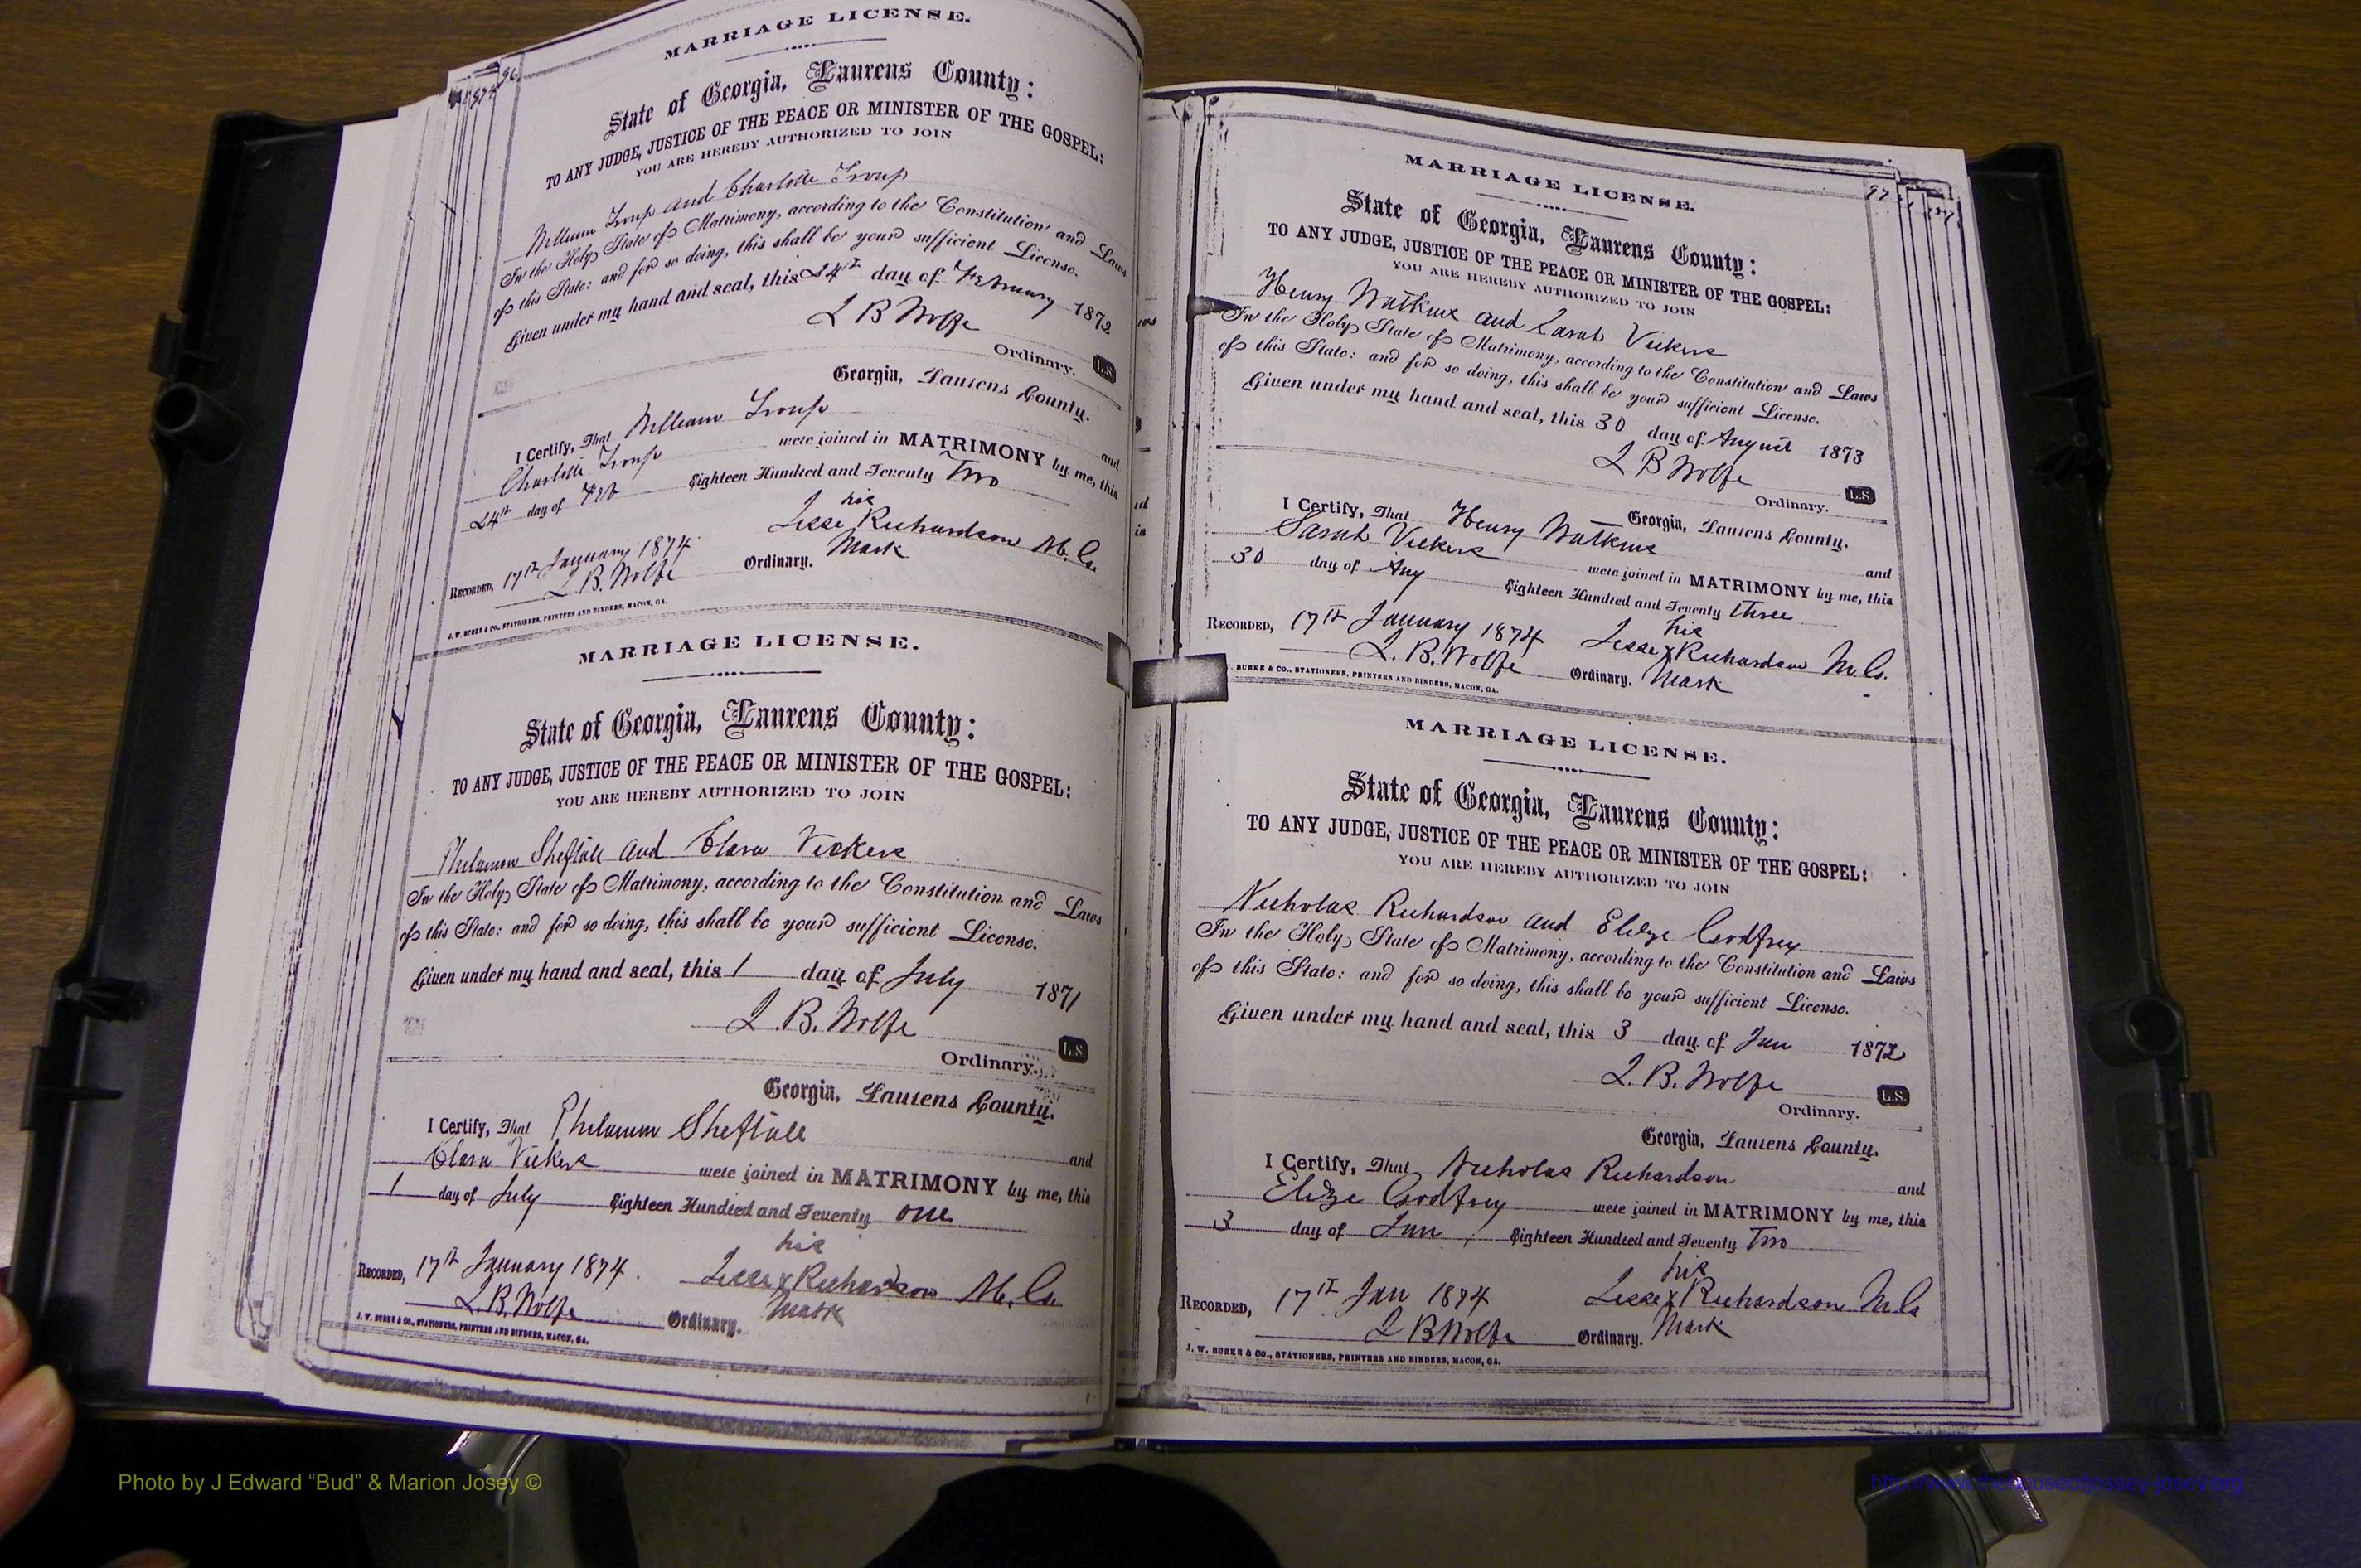 96
MARRIAGE LICENSE.
State of Georgia, Laurens County:
TO ANY JUDGE, JUSTICE OF THE PEACE OR MINISTER OF THE GOSPEL:
YOU ARE HEREBY AUTHORIZED TO JOIN
William Troup and Charlotte Troup
In the Holy State of Matrimony, according to the Constitution and Laws
of this State: and for so doing, this shall be your sufficient License.
Given under my hand and seal, this 24th day of February 1872
L B Wolfe
Ordinary. L.S.
Georgia, Laurens County.
I Certify, That William Troup and
Charlotte Troup were joined in MATRIMONY by me, this
24th day of Feb Eighteen Hundred and Seventy Two
his
Jesse Richardson M. G.
Mark
Recorded, 17th January 1874
L. B. Wolfe Ordinary.
J. W. BURKE & CO., STATIONERS, PRINTERS AND BINDERS, MACON, GA.
MARRIAGE LICENSE.
State of Georgia, Laurens County:
TO ANY JUDGE, JUSTICE OF THE PEACE OR MINISTER OF THE GOSPEL:
YOU ARE HEREBY AUTHORIZED TO JOIN
Sheftall and Clara Vickers
In the Holy State of Matrimony, according to the Constitution and Laws
of this State: and for so doing, this shall be your sufficient License.
Given under my hand and seal, this 1 day of July 1871
L. B. Wolfe
Ordinary. L.S.
Georgia, Laurens County.
I Certify, That Sheftall and
Clara Vickers were joined in MATRIMONY by me, this
1 day of July Eighteen Hundred and Seventy one
his
Jesse x Richardson M. G.
Mark
Recorded, 17th January 1874.
L. B. Wolfe Ordinary.
J. W. BURKE & CO., STATIONERS, PRINTERS AND BINDERS, MACON, GA.
97
MARRIAGE LICENSE.
State of Georgia, Laurens County:
TO ANY JUDGE, JUSTICE OF THE PEACE OR MINISTER OF THE GOSPEL:
YOU ARE HEREBY AUTHORIZED TO JOIN
Henry Watkins and Sarah Vickers
In the Holy State of Matrimony, according to the Constitution and Laws
of this State: and for so doing, this shall be your sufficient License.
Given under my hand and seal, this 30 day of August 1873
L B Wolfe
Ordinary. L.S.
Georgia, Laurens County.
I Certify, That Henry Watkins and
Sarah Vickers were joined in MATRIMONY by me, this
30 day of Aug Eighteen Hundred and Seventy three
his
Jesse x Richardson M. G.
Mark
Recorded, 17th January 1874
L. B. Wolfe Ordinary.
BURKE & CO., STATIONERS, PRINTERS AND BINDERS, MACON, GA.
MARRIAGE LICENSE.
State of Georgia, Laurens County:
TO ANY JUDGE, JUSTICE OF THE PEACE OR MINISTER OF THE GOSPEL:
YOU ARE HEREBY AUTHORIZED TO JOIN
Nicholas Richardson and Eliza Godfrey
In the Holy State of Matrimony, according to the Constitution and Laws
of this State: and for so doing, this shall be your sufficient License.
Given under my hand and seal, this 3 day of Jan 1872
L. B. Wolfe
Ordinary. L.S.
Georgia, Laurens County.
I Certify, That Nicholas Richardson and
Eliza Godfrey were joined in MATRIMONY by me, this
3 day of Jan Eighteen Hundred and Seventy Two
his
Jesse x Richardson M G
Mark
Recorded, 17th Jan 1874
L B Wolfe Ordinary.
J. W. BURKE & CO., STATIONERS, PRINTERS AND BINDERS, MACON, GA.
Photo by J Edward “Bud” & Marion Josey ©